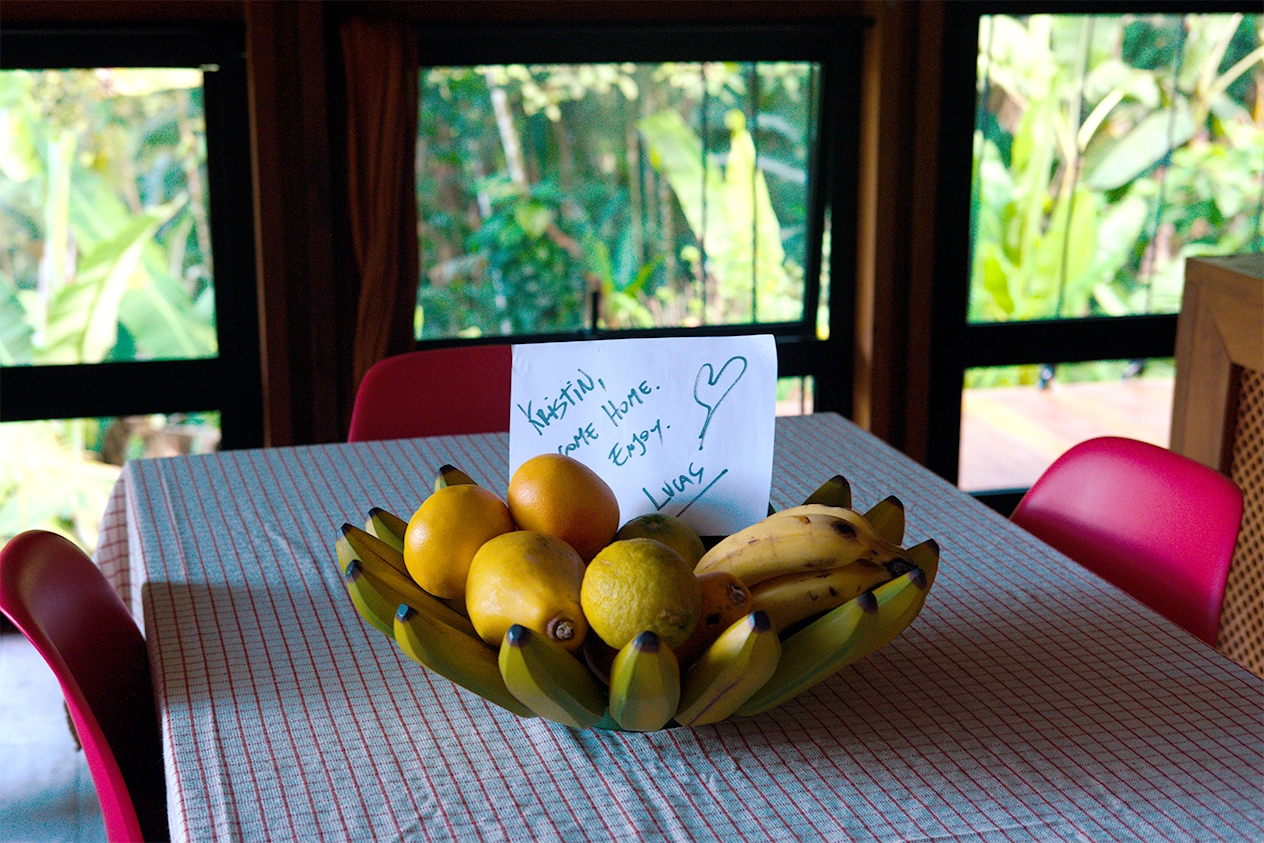 KRISTIN,
COME HOME.
ENJOY.
LUCAS